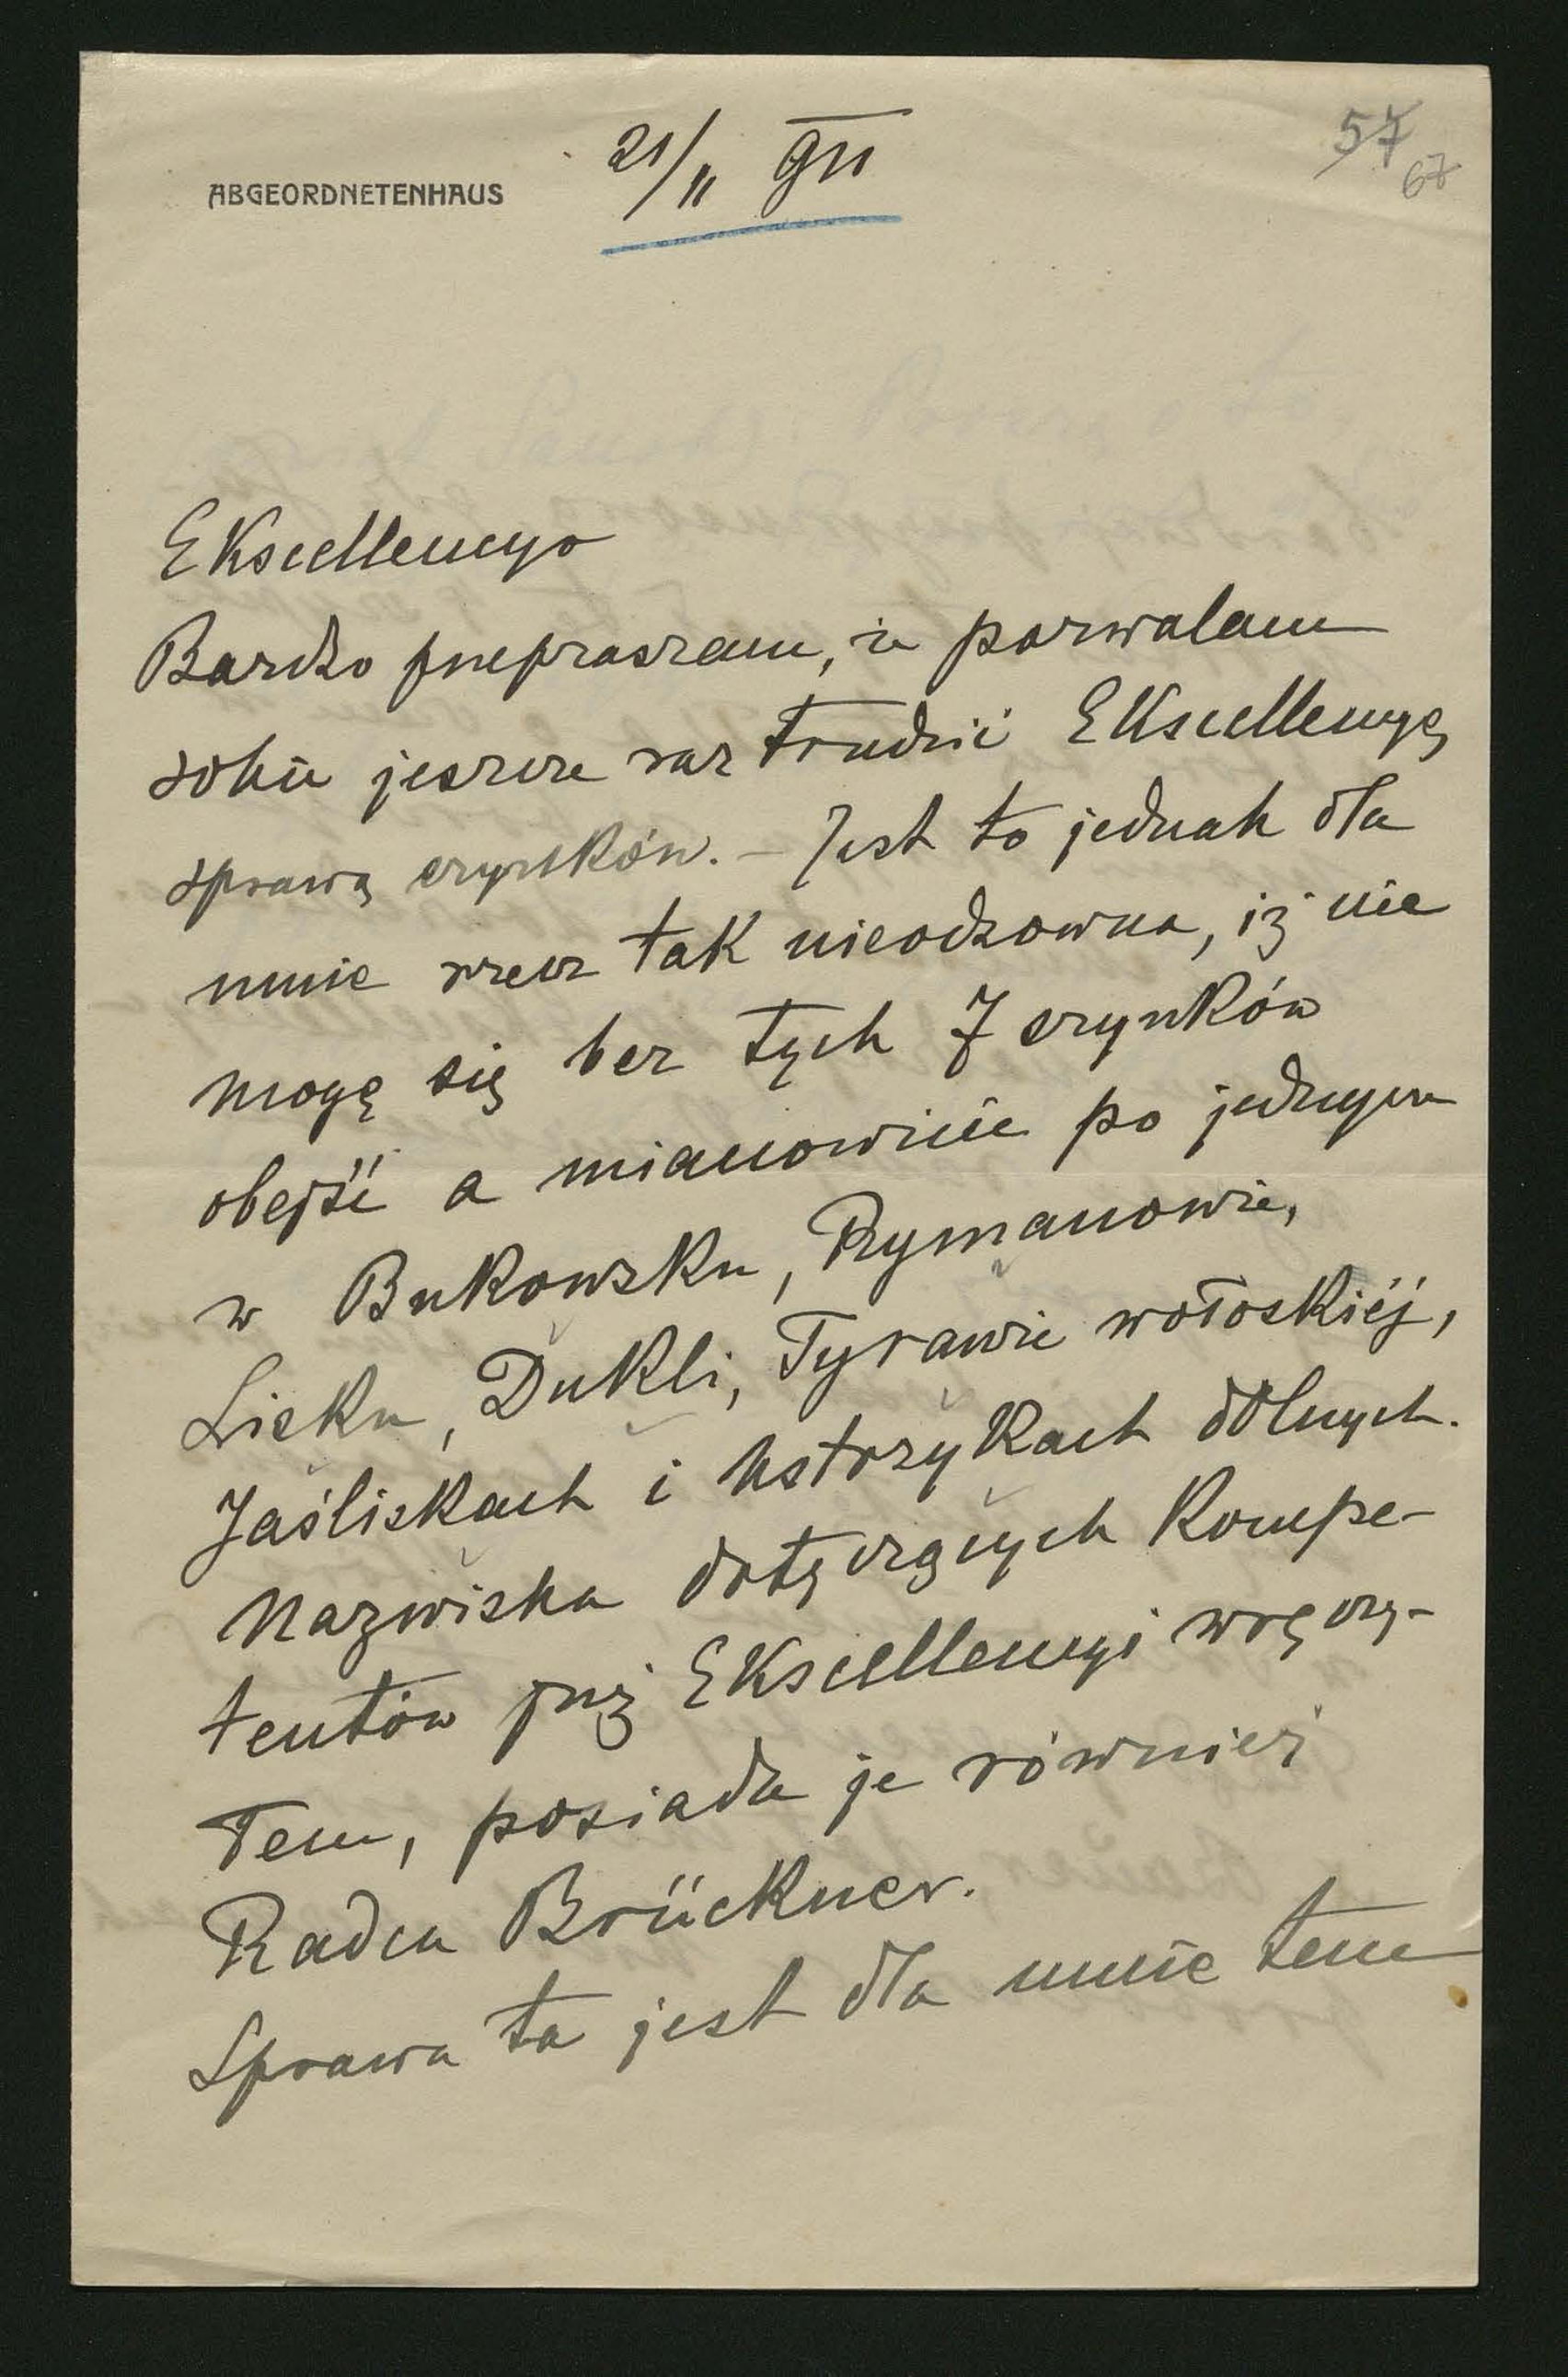 57
67
21/II 911
ABGEORDNETENHAUS
Ekscellencyo
Bardzo przepraszam, że pozwalam
sobie jeszcze raz trudzić Ekscellencyę
sprawą szynków. – Jest to jednak dla
mnie rzecz tak nieodzowna, iż nie
mogę się bez tych 7 szynków
obejść a mianowicie po jednym
w Bukowsku, Rymanowie,
Lisku, Dukli, Tyrawie wołoskiéj,
Jaśliskach i Ustrzykach dolnych.
Nazwiska dotyczących kompe-
tentów już Ekscellencyi wręczy-
łem, posiada je również
Radca Brückner.
Sprawa ta jest dla mnie tem